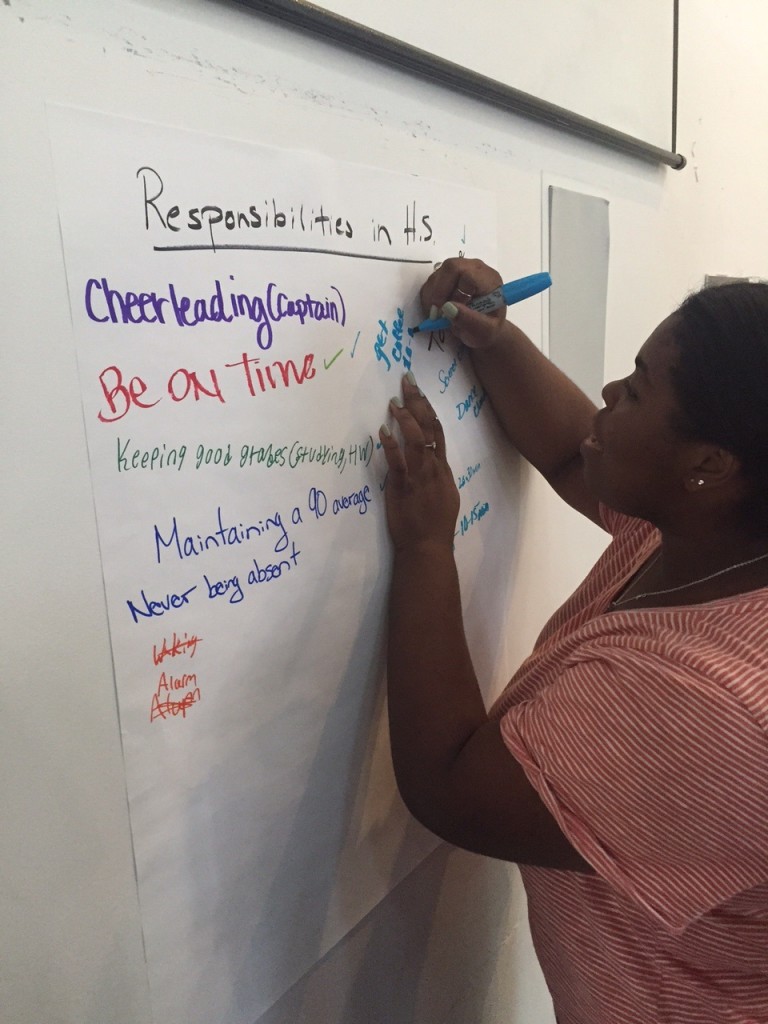 Responsibilities in H.S.
Cheerleading(Captain)
Be ON Time
Keeping good grades(studying, HW)
Maintaining a 90 average
Never being absent
Alarm
get
coffee
Dance
10-15min